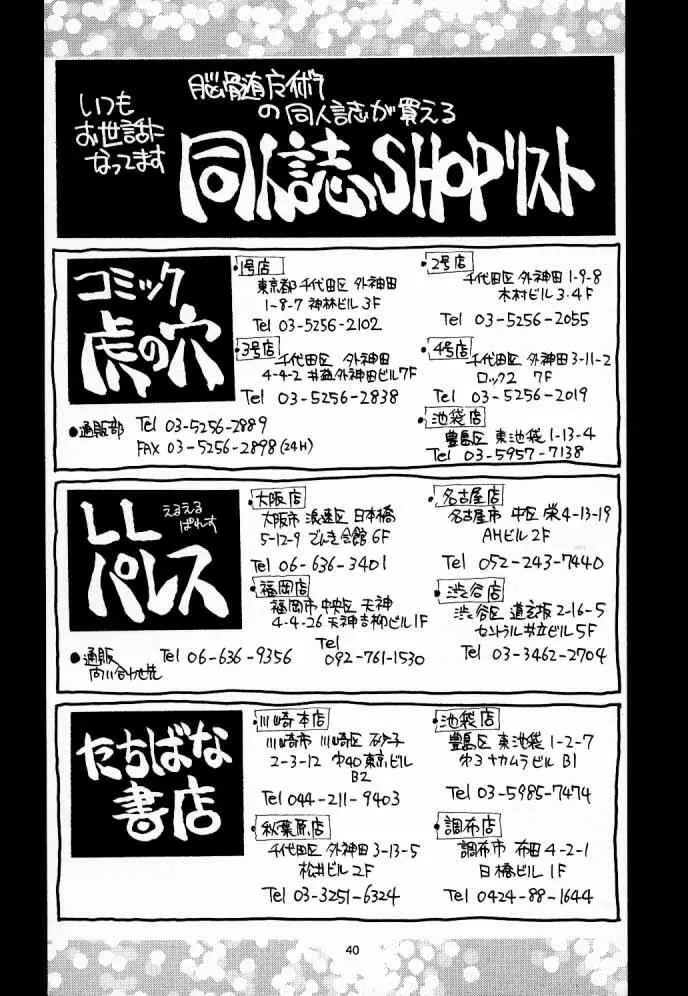 いつも
お世話に
なってます
脳髄
の同人誌が買える
同人誌SHOPリスト
コミック
虎の穴
●1号店
東京都千代田区 外神田
1-8-7 神林ビル3F
Tel 03-5256-2102
●2号店
千代田区 外神田 1-9-8
木村ビル 3・4F
Tel 03-5256-2055
●3号店
千代田区 外神田
4-4-2 外神田ビル7F
Tel 03-5256-2838
●4号店
千代田区 外神田3-11-2
ロック2 7F
Tel 03-5256-2019
●通販部 Tel 03-5256-2889
FAX 03-5256-2898(24H)
●池袋店
豊島区 東池袋1-13-4
Tel 03-5957-7138
LL
パレス
えるえる
ぱれす
●大阪店
大阪市 浪速区 日本橋
5-12-9 でんき会館6F
Tel 06-636-3401
●名古屋店
名古屋市 中区 栄4-13-19
AHビル2F
Tel 052-243-7440
●福岡店
福岡市 中央区 天神
4-4-26 天神吉柳ビル1F
Tel
092-761-1530
●渋谷店
渋谷区 道玄坂2-16-5
セントラル共立ビル5F
Tel 03-3462-2704
●通販
問い合わせ先
Tel 06-636-9356
たちばな
書店
●川崎本店
川崎市 川崎区 砂子
2-3-12 オ40東京ビル
B2
Tel 044-211-9403
●池袋店
豊島区 東池袋1-2-7
オ3ナカムラビル B1
Tel 03-5985-7474
●秋葉原店
千代田区 外神田3-13-5
松井ビル2F
Tel 03-3251-6324
●調布店
調布市 布田 4-2-1
日橋ビル1F
Tel 0424-88-1644
40